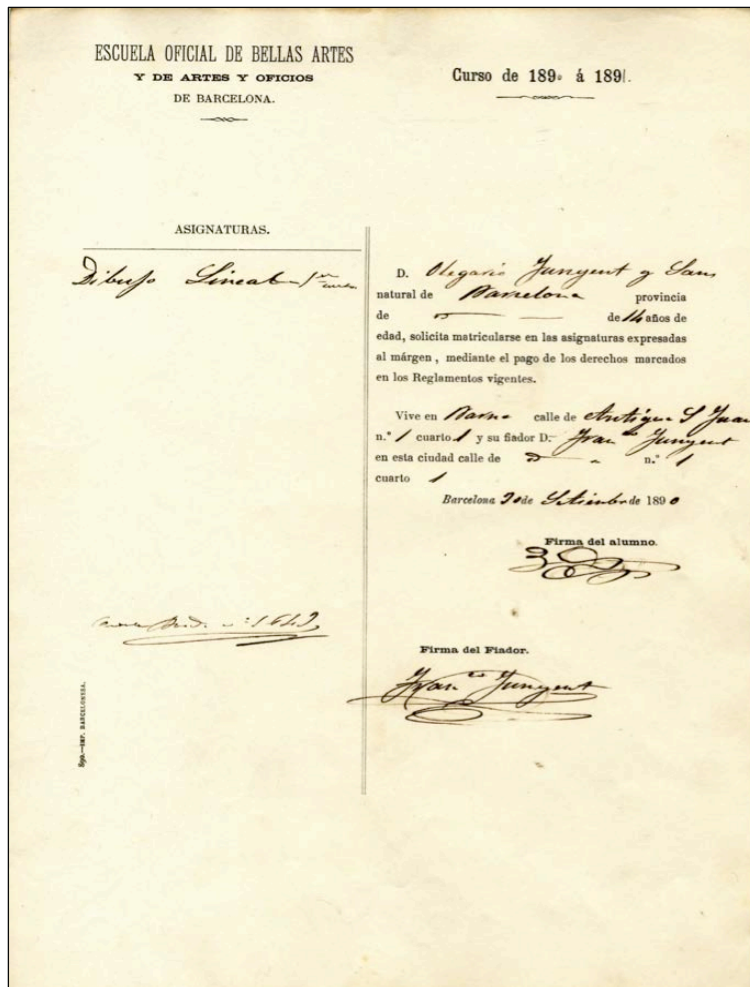 ESCUELA OFICIAL DE BELLAS ARTES
Y DE ARTES Y OFICIOS
DE BARCELONA.
Curso de 1890 á 1891.
ASIGNATURAS.
Dibujo Lineal 1er curso
D. Olegario Junyent y Sans
natural de Barcelona provincia
de de 14 años de
edad, solicita matricularse en las asignaturas expresadas
al márgen, mediante el pago de los derechos marcados
en los Reglamentos vigentes.
Vive en Barna calle de Antigua S Juan
n.º 1 cuarto 1 y su fiador D. Franco Junyent
en esta ciudad calle de n.º 1
cuarto 1
Barcelona de Setiembre de 1890
Firma del alumno.
n.º 1642
Firma del Fiador.
Franco Junyent
IMP. BARCELONESA.